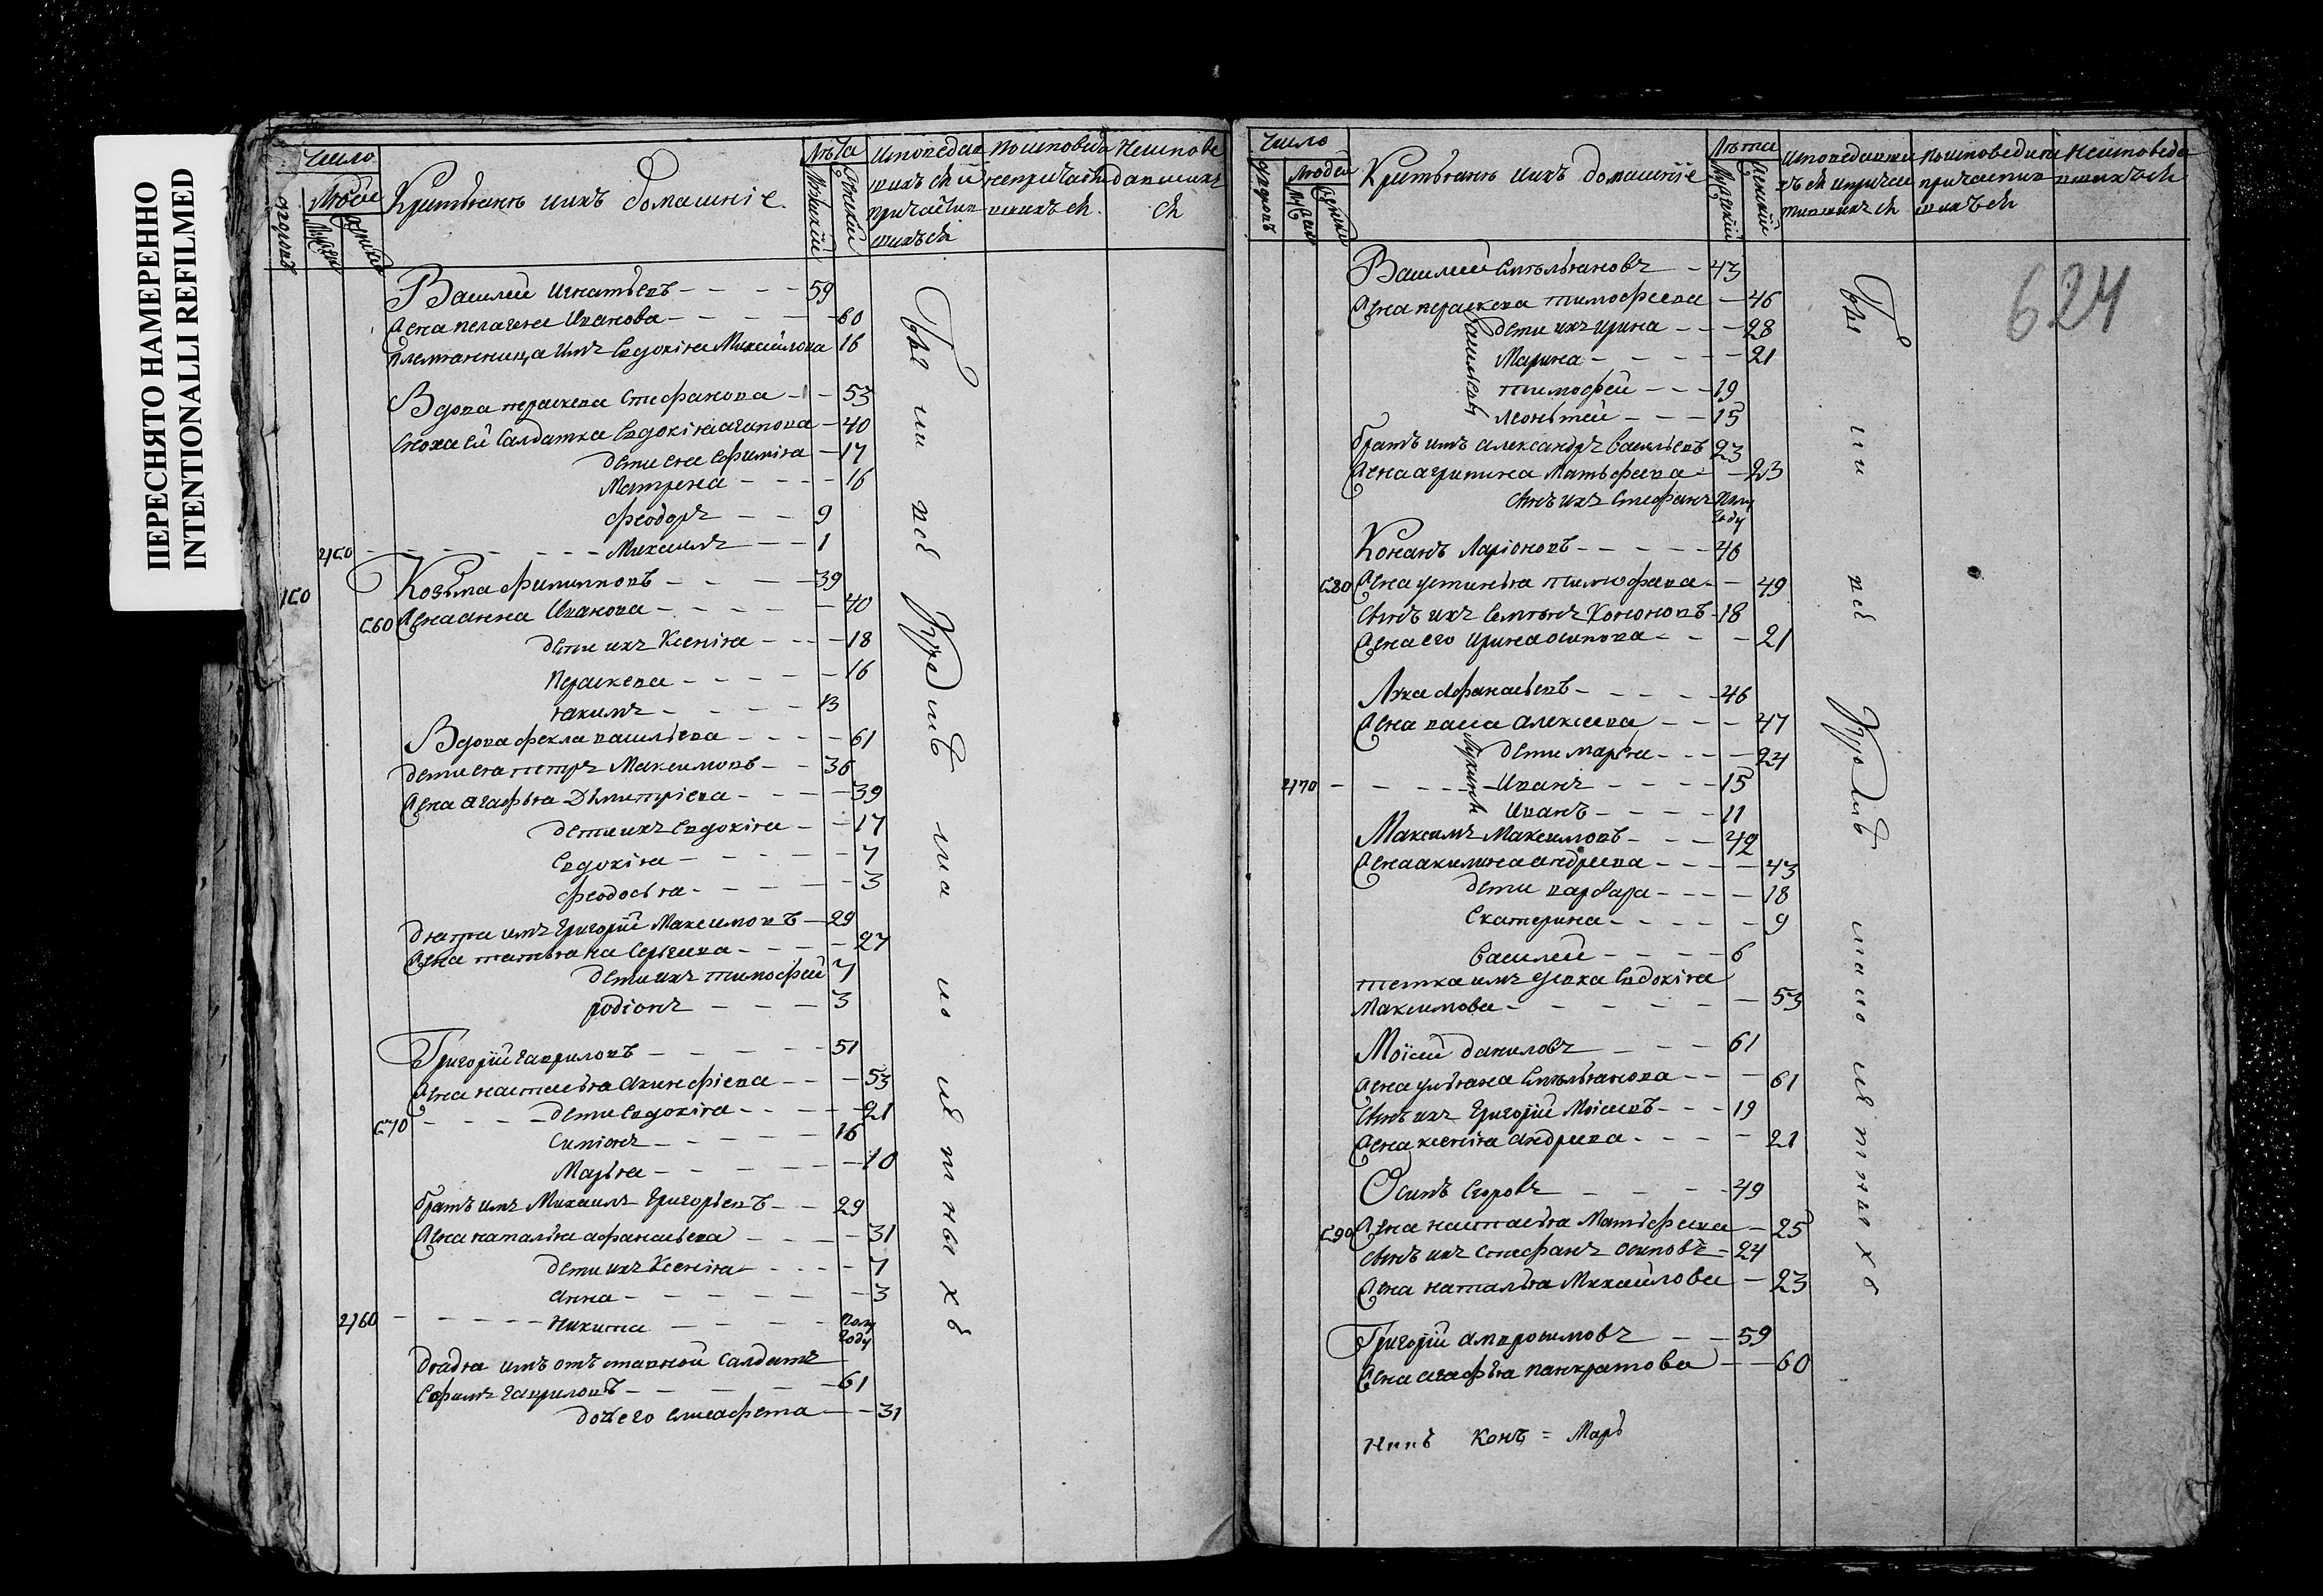 ПЕРЕСНЯТО НАМЕРЕННО
INTENTIONALLI REFILMED
Число
Людей
дворовъ
Крестьяне ихъ домашніе
Лѣта
Мужскій
Женскій
Исповедав
шихъся и
причастив
шихъся
Поисповеда
непричасти
вшихъся
Неисповe
давшихъ
ся
Василей Игнатьевъ - - - - 59
Жена пелагея Иванова - - - - 60
племянница имъ Евдокія Михайлова 16
Вдова параскева Стефанова - - 53
Сноха ей Салдатка Евдокія агапова - 40
дети ея Ефимія - 17
Матрена - - - - 16
феодоръ - - 9
2450 - - - - - - - Михаилъ - - - 1
150
Козьма филипповъ - - - - 39
560 Жена анна Иванова - - - - - 40
дети ихъ Ксенія - - - - 18
Параскева - - - - - 16
іакимъ - - - - 13
Вдова фекла васильева - - - - 61
дети ея петръ Максимовъ - - 36
Жена агафья Дмитріева - - - - 39
дети ихъ Евдокія - - 17
Евдокія - - - - - 7
феодосья - - - - - 3
дядя имъ Григорій Максимовъ - 29
Жена татьяна Сергеева - - - - 27
дети ихъ тимофей 7
родіонъ - - - 3
Григорій гавриловъ - - - - - 51
Жена настасья акинфіева - - - 53
570 - - - - дети Евдокія - - - - 21
Симіонъ - - - - - 16
Марья - - - - - - 10
братъ имъ Михаилъ Григорьевъ - - 29
Жена наталья афанасьева - - - - 31
дети ихъ Ксенія - - - - 7
анна - - - - - - 3
2460 - - - - - никита - - - - полу
году
дядя имъ отъставной Салдатъ
Ефимъ гавриловъ - - - - - 61
дочь его елисафета - - 31
Число
дворовъ
Людей
Крестьяне ихъ домашніе
Лѣта
Мужскій
Женскій
Исповедавши
хъся и причас
тившихъся
Поисповеди не
причастив
шихъся
Неисповеда
вшихъся
624
Василей Емельяновъ - 43
Жена параскева тимофеева - 46
дети ихъ ирина - - - 28
Марина - - - - - - 21
тимофей - - - 19
леонтей - - - 15
Васильевы
братъ имъ александръ Васильевъ 23
Жена агрипина Матьфеева - - 23
сынъ ихъ Стефанъ полу
году
Конанъ Ларіоновъ - - - - - 46
580 Жена устинья тимофеева - - 49
сынъ ихъ Емельянъ Кононовъ - 18
Жена его ирина осипова - - - 21
Лука афанасьевъ - - - - 46
Жена васса алексеева - - - 47
дети марья - - - - 24
2470 - - - - - - Иванъ - - - - 15
Иванъ - - - - 11
Лукины
Максимъ Максимовъ - - - 42
Жена акилина андреева - - - - 43
дети варвара - - - - 18
Екатерина - - - - - 9
Василей - - - - 6
тетка имъ девка Евдокія
Максимова - - - - - - 53
Моісей даниловъ - - - 61
Жена ульяна Емельянова - - - 61
сынъ ихъ Григорій Моісеевъ - - - 19
Жена ксенія андреева - - - - 21
Осипъ Егоровъ - - - - 49
590 Жена настасья Матьфеева - 25
сынъ ихъ стефанъ осиповъ - 24
Жена наталья Михайлова - 23
Григорій амвросимовъ - - 59
Жена агафья панкратова - - 60
Конъ = Марь